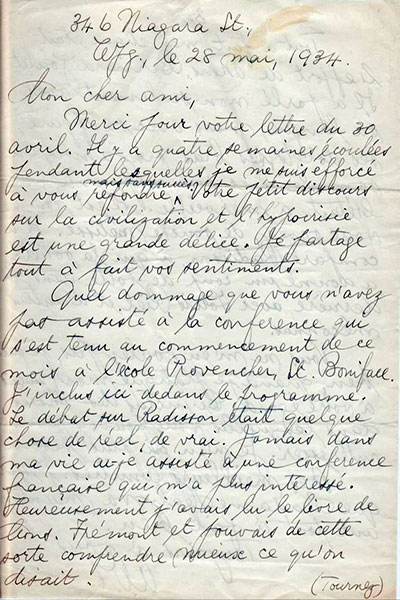 346 Niagara St.,
Wpg., le 28 mai, 1934.
Mon cher ami,
Merci pour votre lettre du 30
avril. Il y a quatre semaines écoulées
pendant lesquelles je me suis efforcé
mais sans succès
à vous répondre. Votre petit discours
sur la civilization et l'hypocrisie
est une grande délice. Je partage
tout à fait vos sentiments.
Quel dommage que vous n'avez
pas assisté à la conference qui
s'est tenu au commencement de ce
mois à l'école Provencher, St. Boniface.
J'inclus ici dedans le programme.
Le débat sur Radisson était quelque
chose de réel, de vrai. Jamais dans
ma vie ai-je assisté à une conference
française qui m'a plus interessé.
Heureusement j'avais lu le livre de
Mons. Frémont et pouvais de cette
sorte comprendre mieux ce qu'on
disait.
(Tournez)